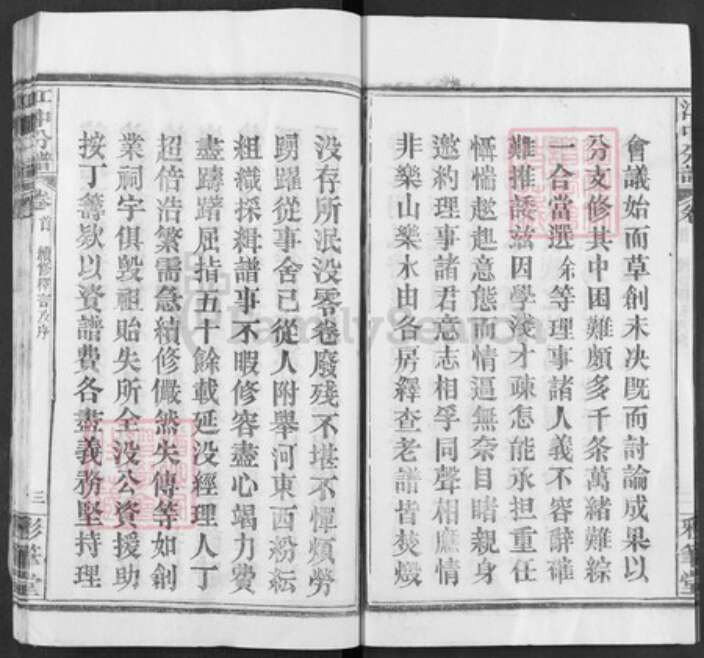 會議始而草創未决旣而討論成果以
分支修其中困難頗多千条萬緒難綜
一合當選余等理事諸人義不容辭確
難推諉茲因學淺才疎怎能承担重任
慑惴趑趄意態而情逼無奈目睹親身
邀約理事諸君意志相孚同聲相應情
非樂山樂水由各房繹查老譜皆焚燬
没存所泯没零卷廢残不堪不憚煩勞
踴躍從事舍己從人附舉河東西紛紜
組織採緝譜事不暇修容盡心竭力費
盡躊躇屈指五十餘載延没經理人丁
超倍浩繁需急續修儼然失傳等如創
業祠宇俱毀祖貽失所全没公資援助
按丁籌欵以資譜費各盡義務堅持理
分譜
卷首
續修繹言及序
三
彩筆堂
FamilySearch